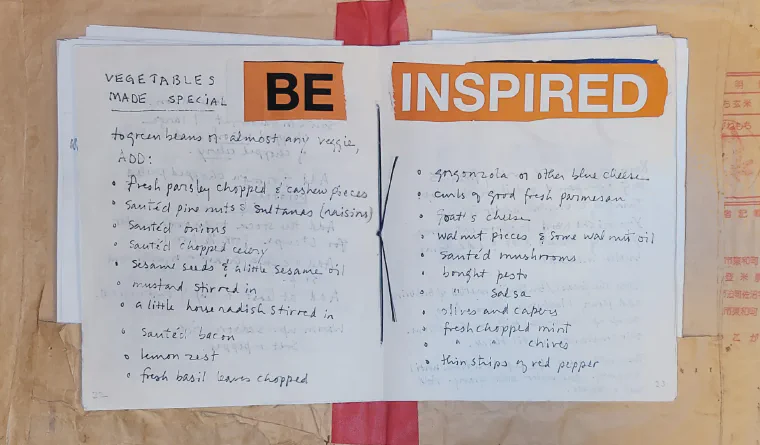 VEGETABLES
MADE SPECIAL
BE
to green beans or almost any veggie,
ADD:
• fresh parsley chopped & cashew pieces
• Sautéd pine nuts & Sultanas (raisins)
• Sautéd onions
• Sautéd chopped celery
• Sesame seeds & a little sesame oil
• mustard stirred in
• a little horseradish stirred in
• Sautéd bacon
• lemon zest
• fresh basil leaves chopped
22
INSPIRED
• gorgonzola or other blue cheese
• curls of good fresh parmesan
• goat's cheese
• walnut pieces & some walnut oil
• sautéd mushrooms
• bought pesto
• " salsa
• olives and capers
• fresh chopped mint
• " " chives
• thin strips of red pepper
23